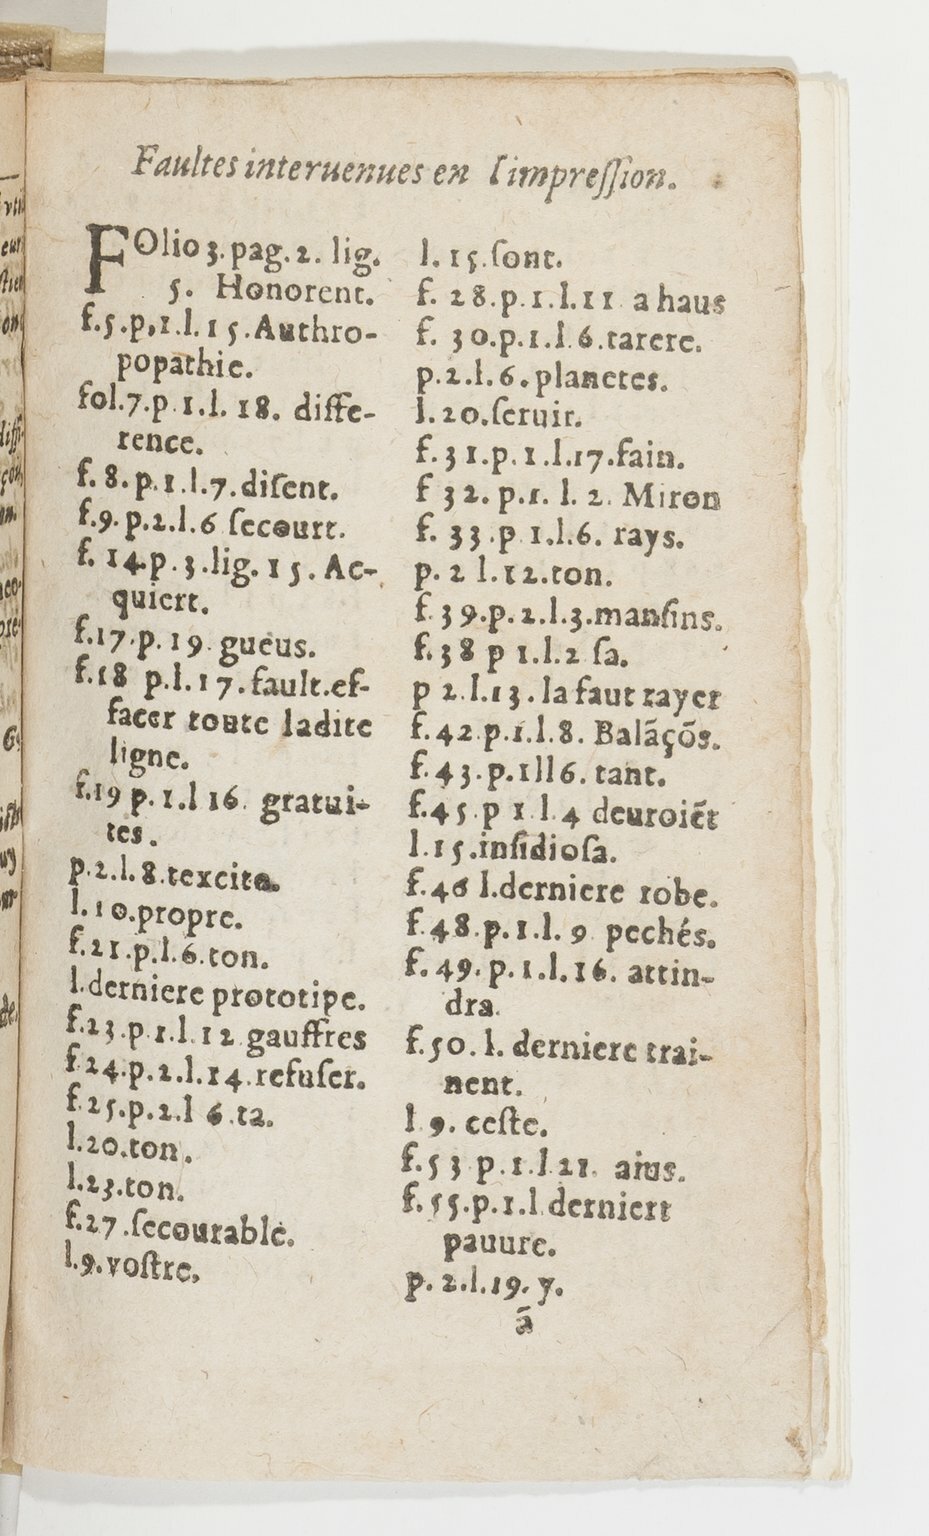 Faultes interuenues en l'impreſſion.
FOlio 3. pag. 2. lig.
5. Honorent.
f.5.p,1.l.15.Authro-
popathie.
fol.7.p.1.l. 18. diffe-
rence.
f. 8. p.1.l.7. diſent.
f.9. p.2.l.6 ſecourt.
f. 14.p.3.lig. 15. Ac-
quiert.
f.17.p.19. gueus.
f.18 p.l.17.fault.ef-
facer toute ladite
ligne.
f.19 p.1.l 16. gratui-
tes.
p.2.l.8.texcite.
l.10.propre.
f.21.p.l.6.ton.
l.derniere prototipe.
f.23.p.1.l.12 gauffres
f.24.p.2.l.14.refuſer.
f.25.p.2.l 6.ta.
l.20.ton.
l.23.ton.
f.27.ſecourable.
l.9.voſtre,
l.15.ſont.
f. 28.p.1.l.11 a haus
f. 30.p.1.l.6.tarere.
p.2.l.6.planetes.
l.20.ſeruir.
f.31.p.1.l.17.fain.
f 32. p.1. l. 2. Miron
f. 33.p 1.l.6. rays.
p. 2 l.12.ton.
f.39.p.2.l.3.manſins.
f.38 p 1.l.2 ſa.
p 2.l.13. la faut rayer
f.42.p.1.l.8. Balãçõs.
f.43.p.1ll6. tant.
f.45.p 1.l.4 deuroiẽt
l.15.inſidioſa.
f.46 l.derniere robe.
f.48.p.1.l. 9 pechés.
f. 49. p.1.l.16. attin-
dra.
f.50. l. derniere trai-
nent.
l 9. ceſte.
f.53 p.1.l 21. aius.
f.55.p.1.l.derniert
pauure.
p. 2.l.19. y.
ã